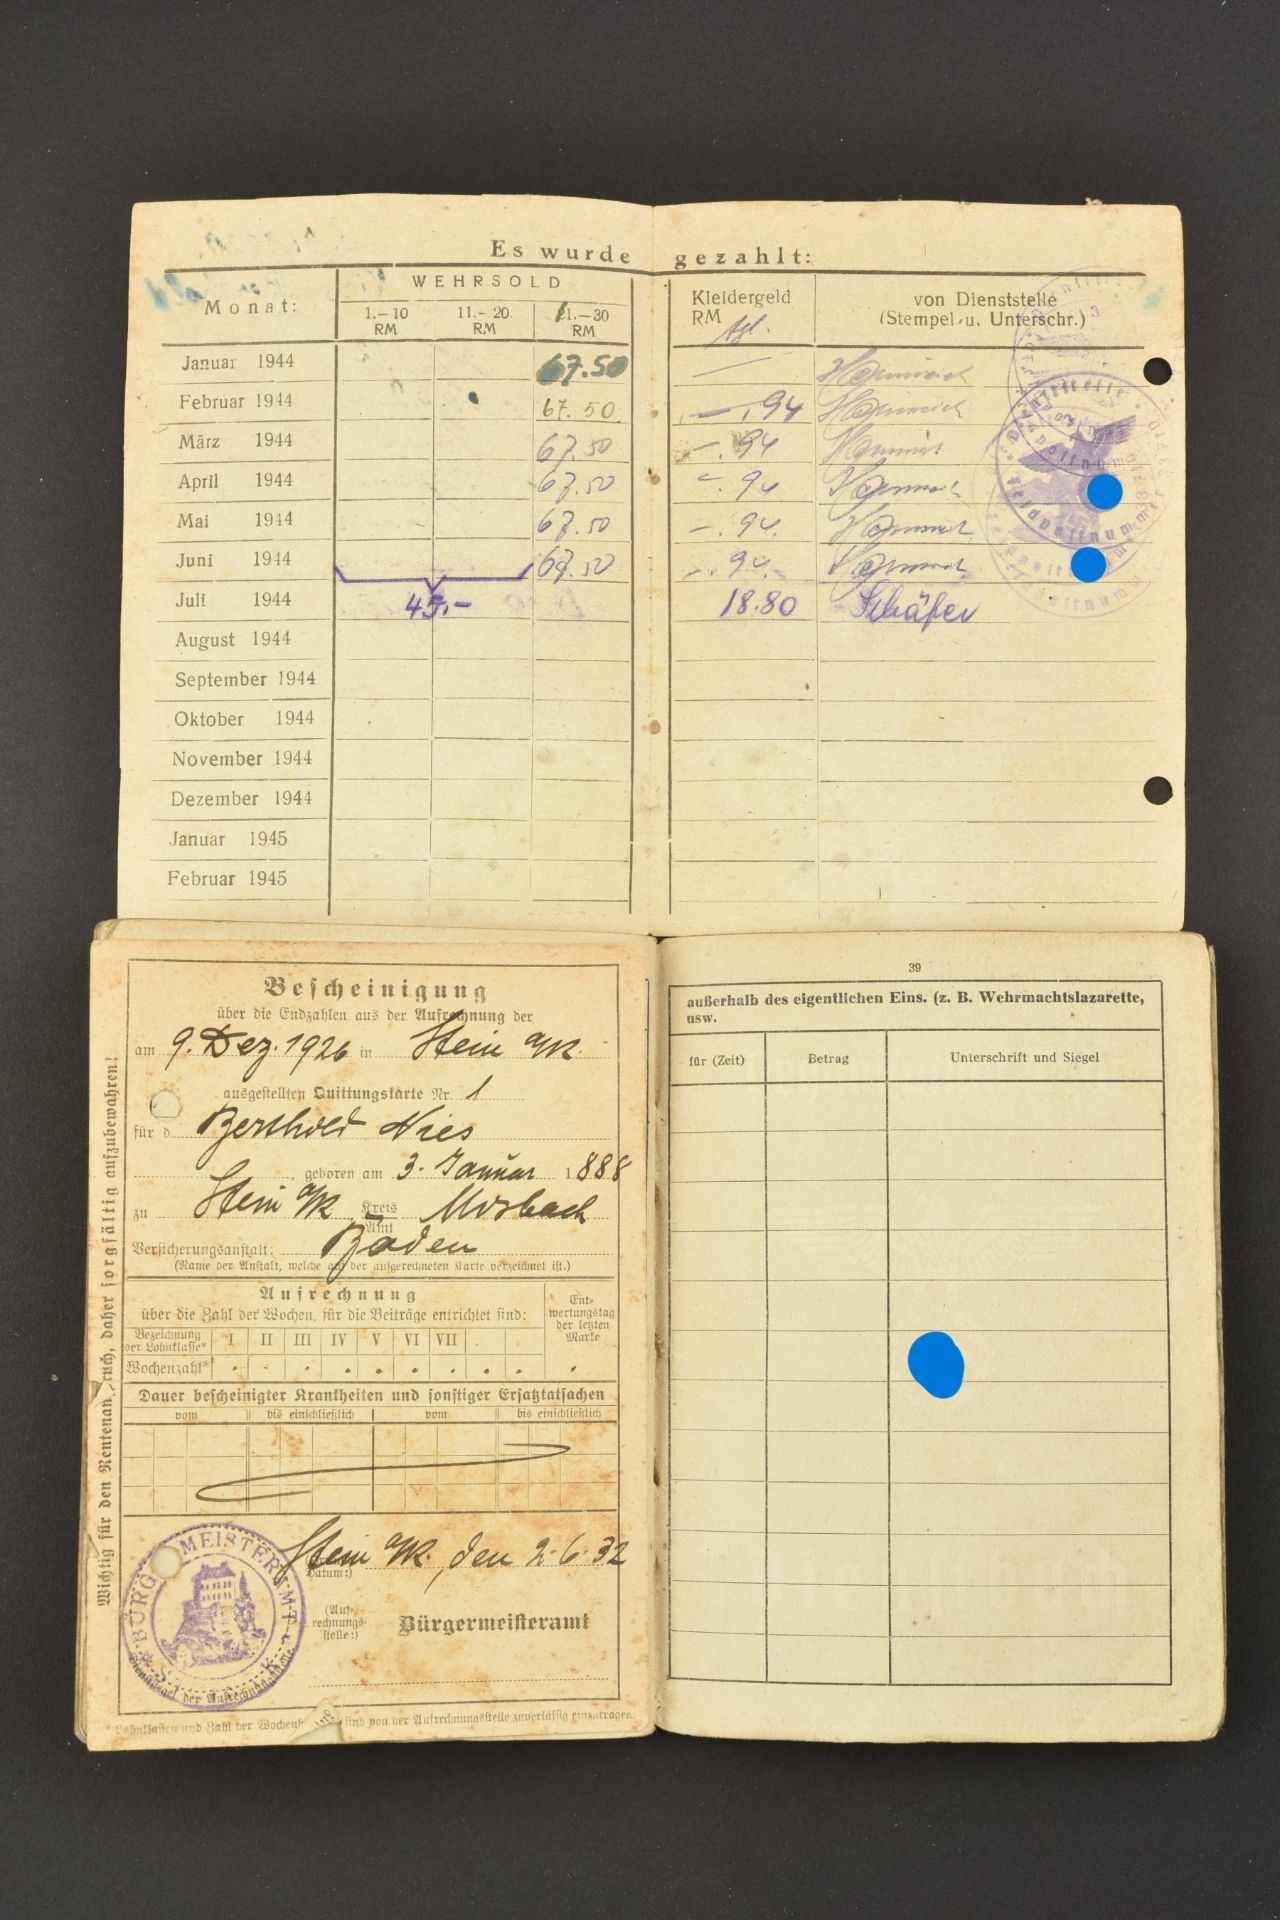 Es wurde gezahlt:
Monat:
WEHRSOLD
Kleidergeld
RM
tgl.
von Dienststelle
(Stempel u. Unterschr.)
1.–10
RM
11.–20
RM
11.–30
RM
Januar 1944 67.50 —
Februar 1944 67.50 —.94
März 1944 67.50 —.94
April 1944 67.50 —.94
Mai 1944 67.50 —.94
Juni 1944 67.50 —.94
Juli 1944 45.— 18.80 Schäfer
August 1944
September 1944
Oktober 1944
November 1944
Dezember 1944
Januar 1945
Februar 1945
Dienststelle
Feldpostnummer
Wichtig für den Rentenanspruch, daher sorgfältig aufzubewahren!
Bescheinigung
über die Endzahlen aus der Aufrechnung der
am 9. Dez. 1926 in Stein a/K.
ausgestellten Quittungskarte Nr. 1
für d Berthold Nies
geboren am 3. Januar 1888
zu Stein a/K Kreis Mosbach
Amt
Versicherungsanstalt: Baden
(Name der Anstalt, welche auf der aufgerechneten Karte verzeichnet ist.)
Aufrechnung
über die Zahl der Wochen, für die Beiträge entrichtet sind:
Entwertungstag
der letzten
Marke
Bezeichnung
der Lohnklasse* I II III IV V VI VII
Wochenzahl*
Dauer bescheinigter Krankheiten und sonstiger Ersatztatsachen
vom bis einschließlich vom bis einschließlich
Stein a/K., den 2.6.32
Datum:)
(Aufrechnungsstelle:)
Bürgermeisteramt
BÜRGERMEISTERAMT
Dienstsiegel der Aufrechnungsstelle
* Lohnklassen und Zahl der Wochen sind von der Aufrechnungsstelle zuverlässig einzutragen.
39
außerhalb des eigentlichen Eins. (z. B. Wehrmachtslazarette,
usw.
für (Zeit) Betrag Unterschrift und Siegel